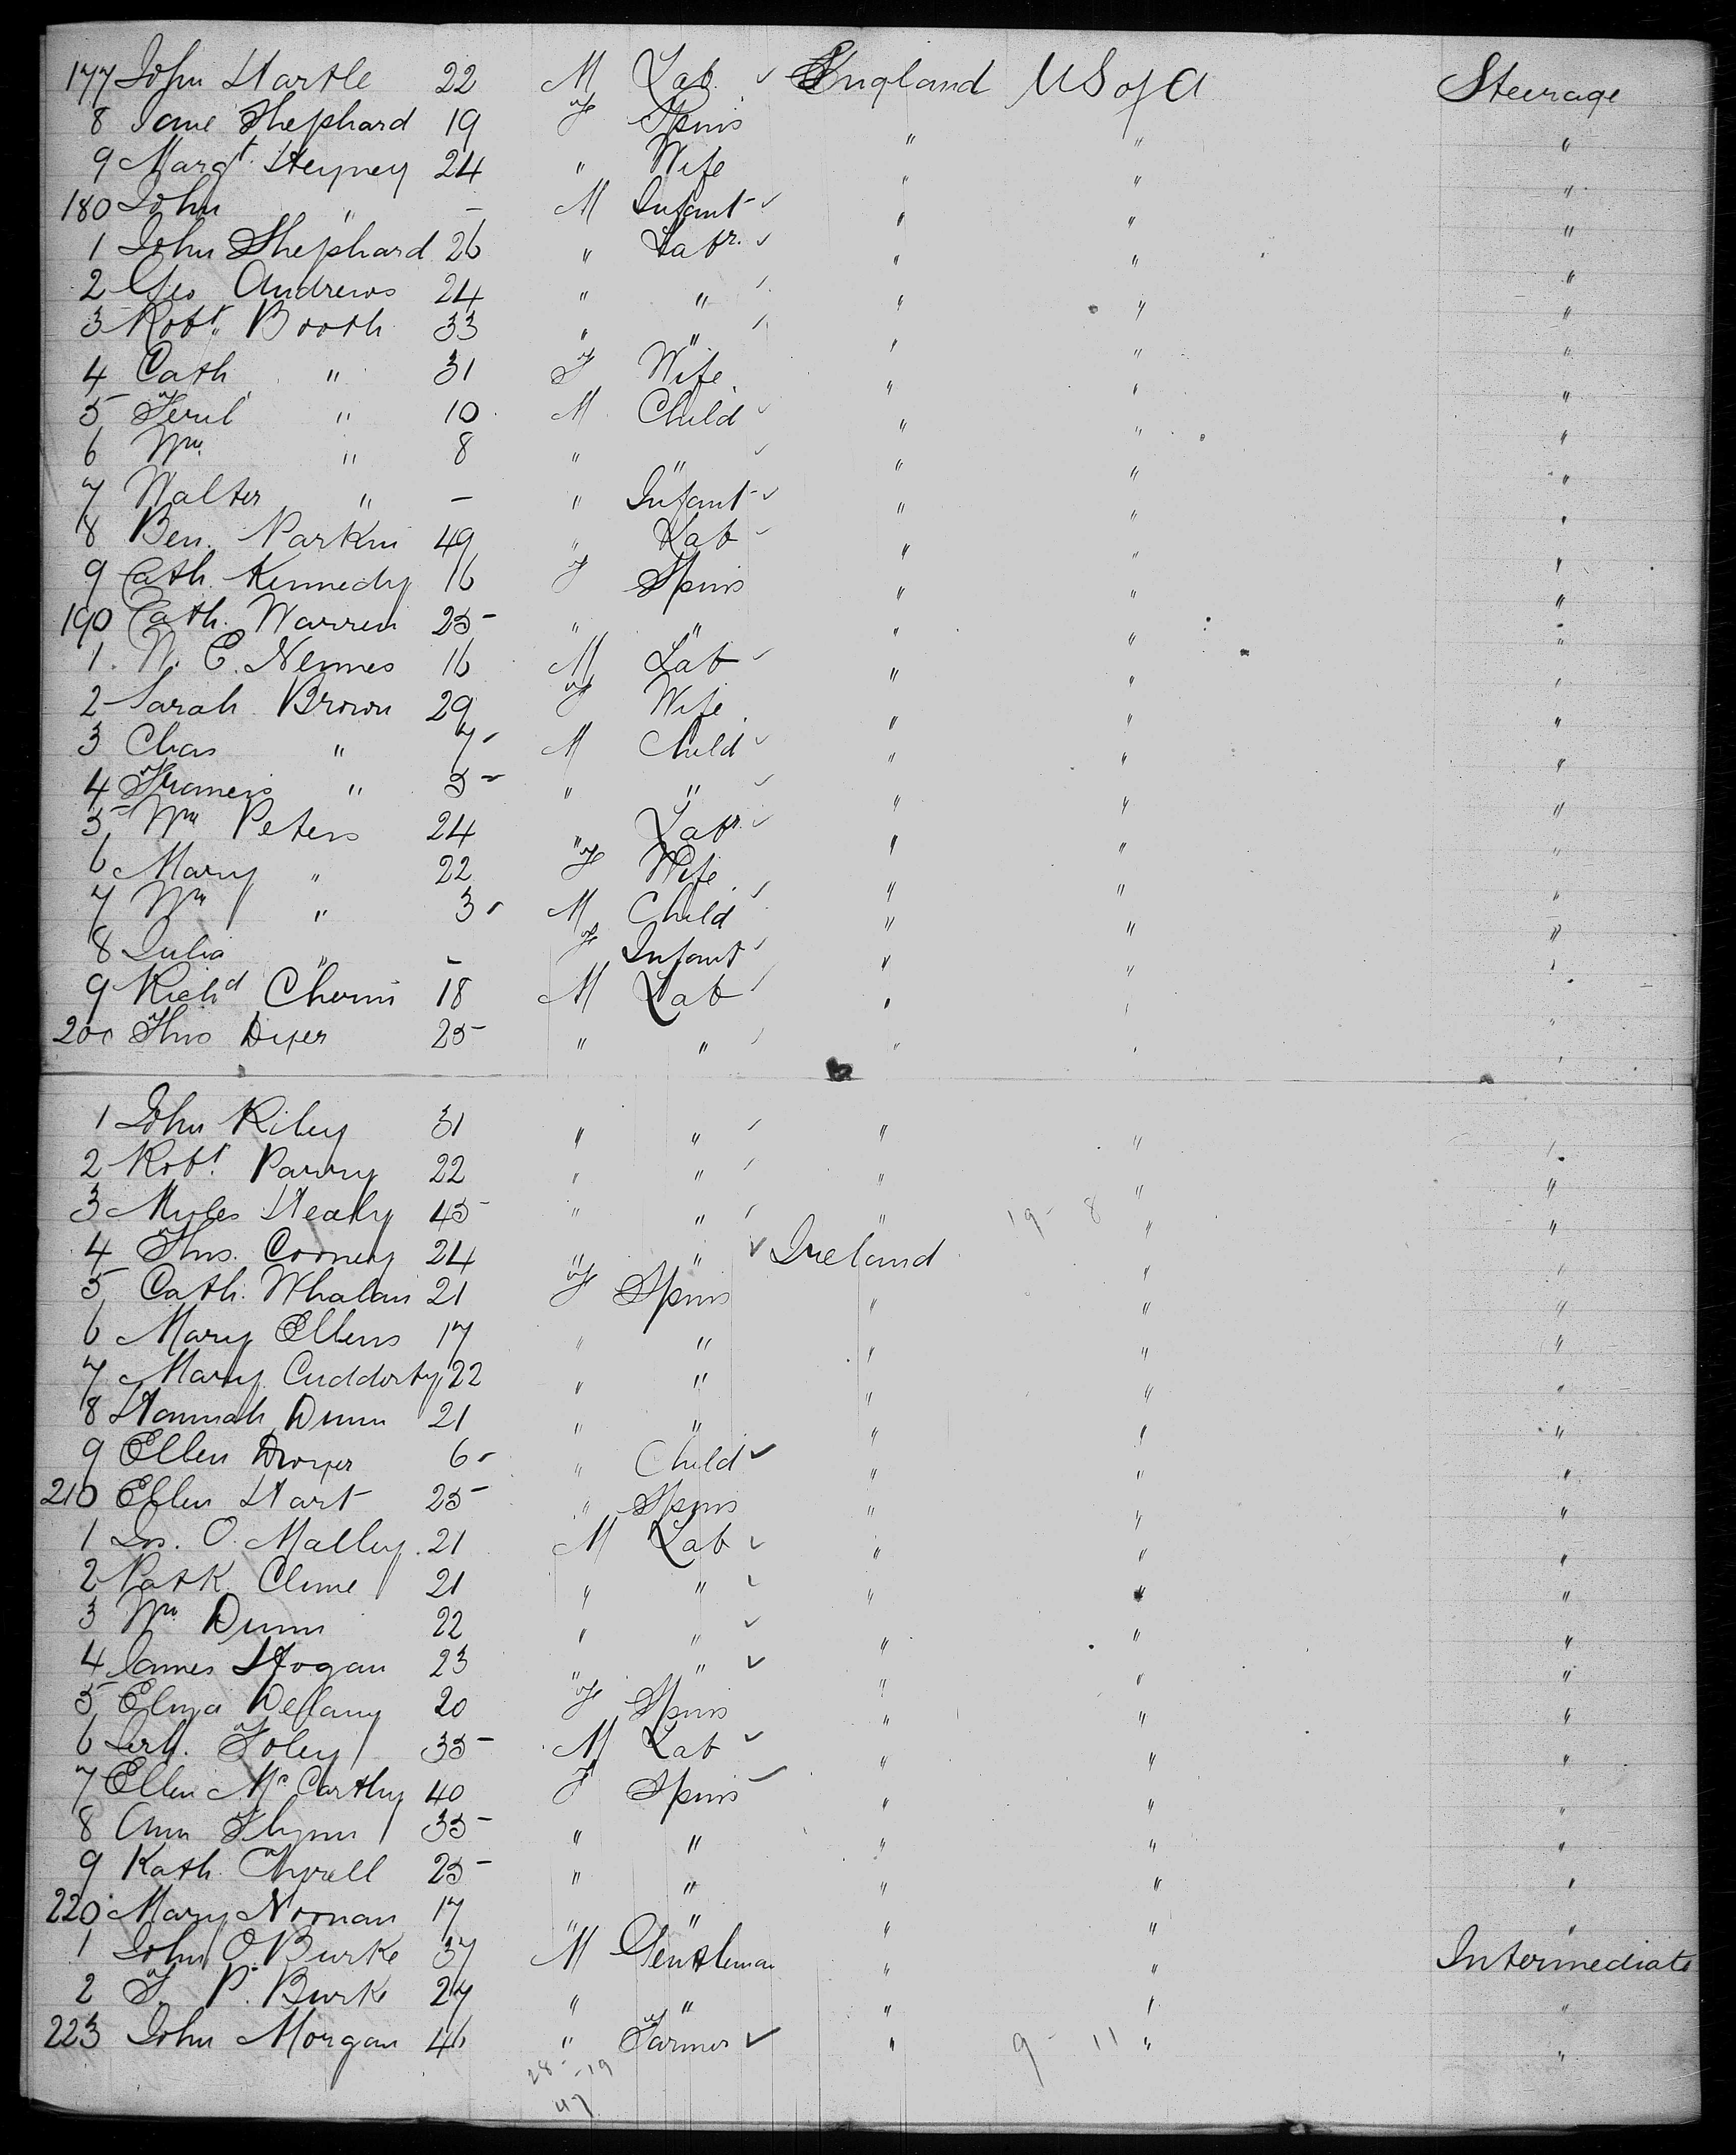 177 John Hartle 22 M Lab. ✓ England US of A Steerage
8 Jane Shephard 19 F Spins " " "
9 Margt. Heyney 24 " Wife " " "
180 John " – M Infant ✓ " " "
1 John Shephard 26 " Labr. ✓ " " "
2 Geo Andrews 24 " " ✓ " " "
3 Robt. Booth 33 " " ✓ " " "
4 Cath " 31 F Wife " " "
5 " 10 M Child ✓ " " "
6 Wm. " 8 " " ✓ " " "
7 Walter " – " Infant ✓ " " "
8 Ben. Parkin 49 " Lab ✓ " " "
9 Cath. Kennedy 16 F Spins " " "
190 Cath. Warren 25 " " " " "
1 N. C. Nennes 16 M Lab ✓ " " "
2 Sarah Brown 29 F Wife " " "
3 Chas " 7 M Child ✓ " " "
4 Francis " 5 " " ✓ " " "
5 Wm Peters 24 " Labr ✓ " " "
6 Mary " 22 F Wife " " "
7 Wm " 3 M Child ✓ " " "
8 Julia " – F Infant ✓ " " "
9 Richd Cherm 18 M Lab ✓ " " "
200 Thos Dyer 25 " " ✓ " " "
1 John Riley 31 " " ✓ " " "
2 Robt. Parry 22 " " ✓ " " "
3 Myles Healy 45 " " ✓ " 19 - 8 " "
4 Thos. Cooney 24 " " ✓ Ireland " "
5 Cath. Whalan 21 F Spins " " "
6 Mary Ellens 17 " " " " "
7 Mary Cuddorty 22 " " " " "
8 Hannah Dunn 21 " " " " "
9 Ellen Dwyer 6 " Child ✓ " " "
210 Ellen Hart 25 " Spins " " "
1 Jos. O. Malley 21 M Lab ✓ " " "
2 Patk Clune 21 " " ✓ " " "
3 Wm Dunn 22 " " ✓ " " "
4 James Hogan 23 " " ✓ " " "
5 Eliza Dellany 20 F Spins " " "
6 Foley 35 M Lab ✓ " " "
7 Ellen McCarthy 40 F Spins " " "
8 Ann Flynn 35 " " " " "
9 Kath. Tyrell 25 " " " " "
220 Mary Noonan 17 " " " " "
1 John O. Burke 37 M Gentleman " " Intermediate
2 F. P. Burke 27 " " " " "
223 John Morgan 46 " Farmer ✓ " 9 - 11 " "
28 - 19
47